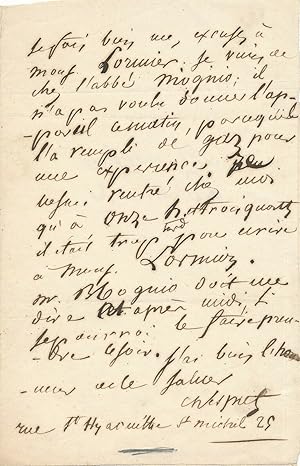 je fais bien mes excuses à
mons. Lormier. je viens de
chez l'abbé moigno; il
n'a pas voulu donner l'ap-
-pareil ce matin, parce qu'il
l'a rempli de gaz pour
une experience
rentré chez moi
qu'à onze h trois quarts
il était trop tard pour écrire
à mons. Lormier.
mr. Moigno doit me
dire cet après midi, si
je pourrai le faire pren-
-dre le soir. j'ai bien l'hon-
-neur de le saluer
rue St hyacinthe St michel 25